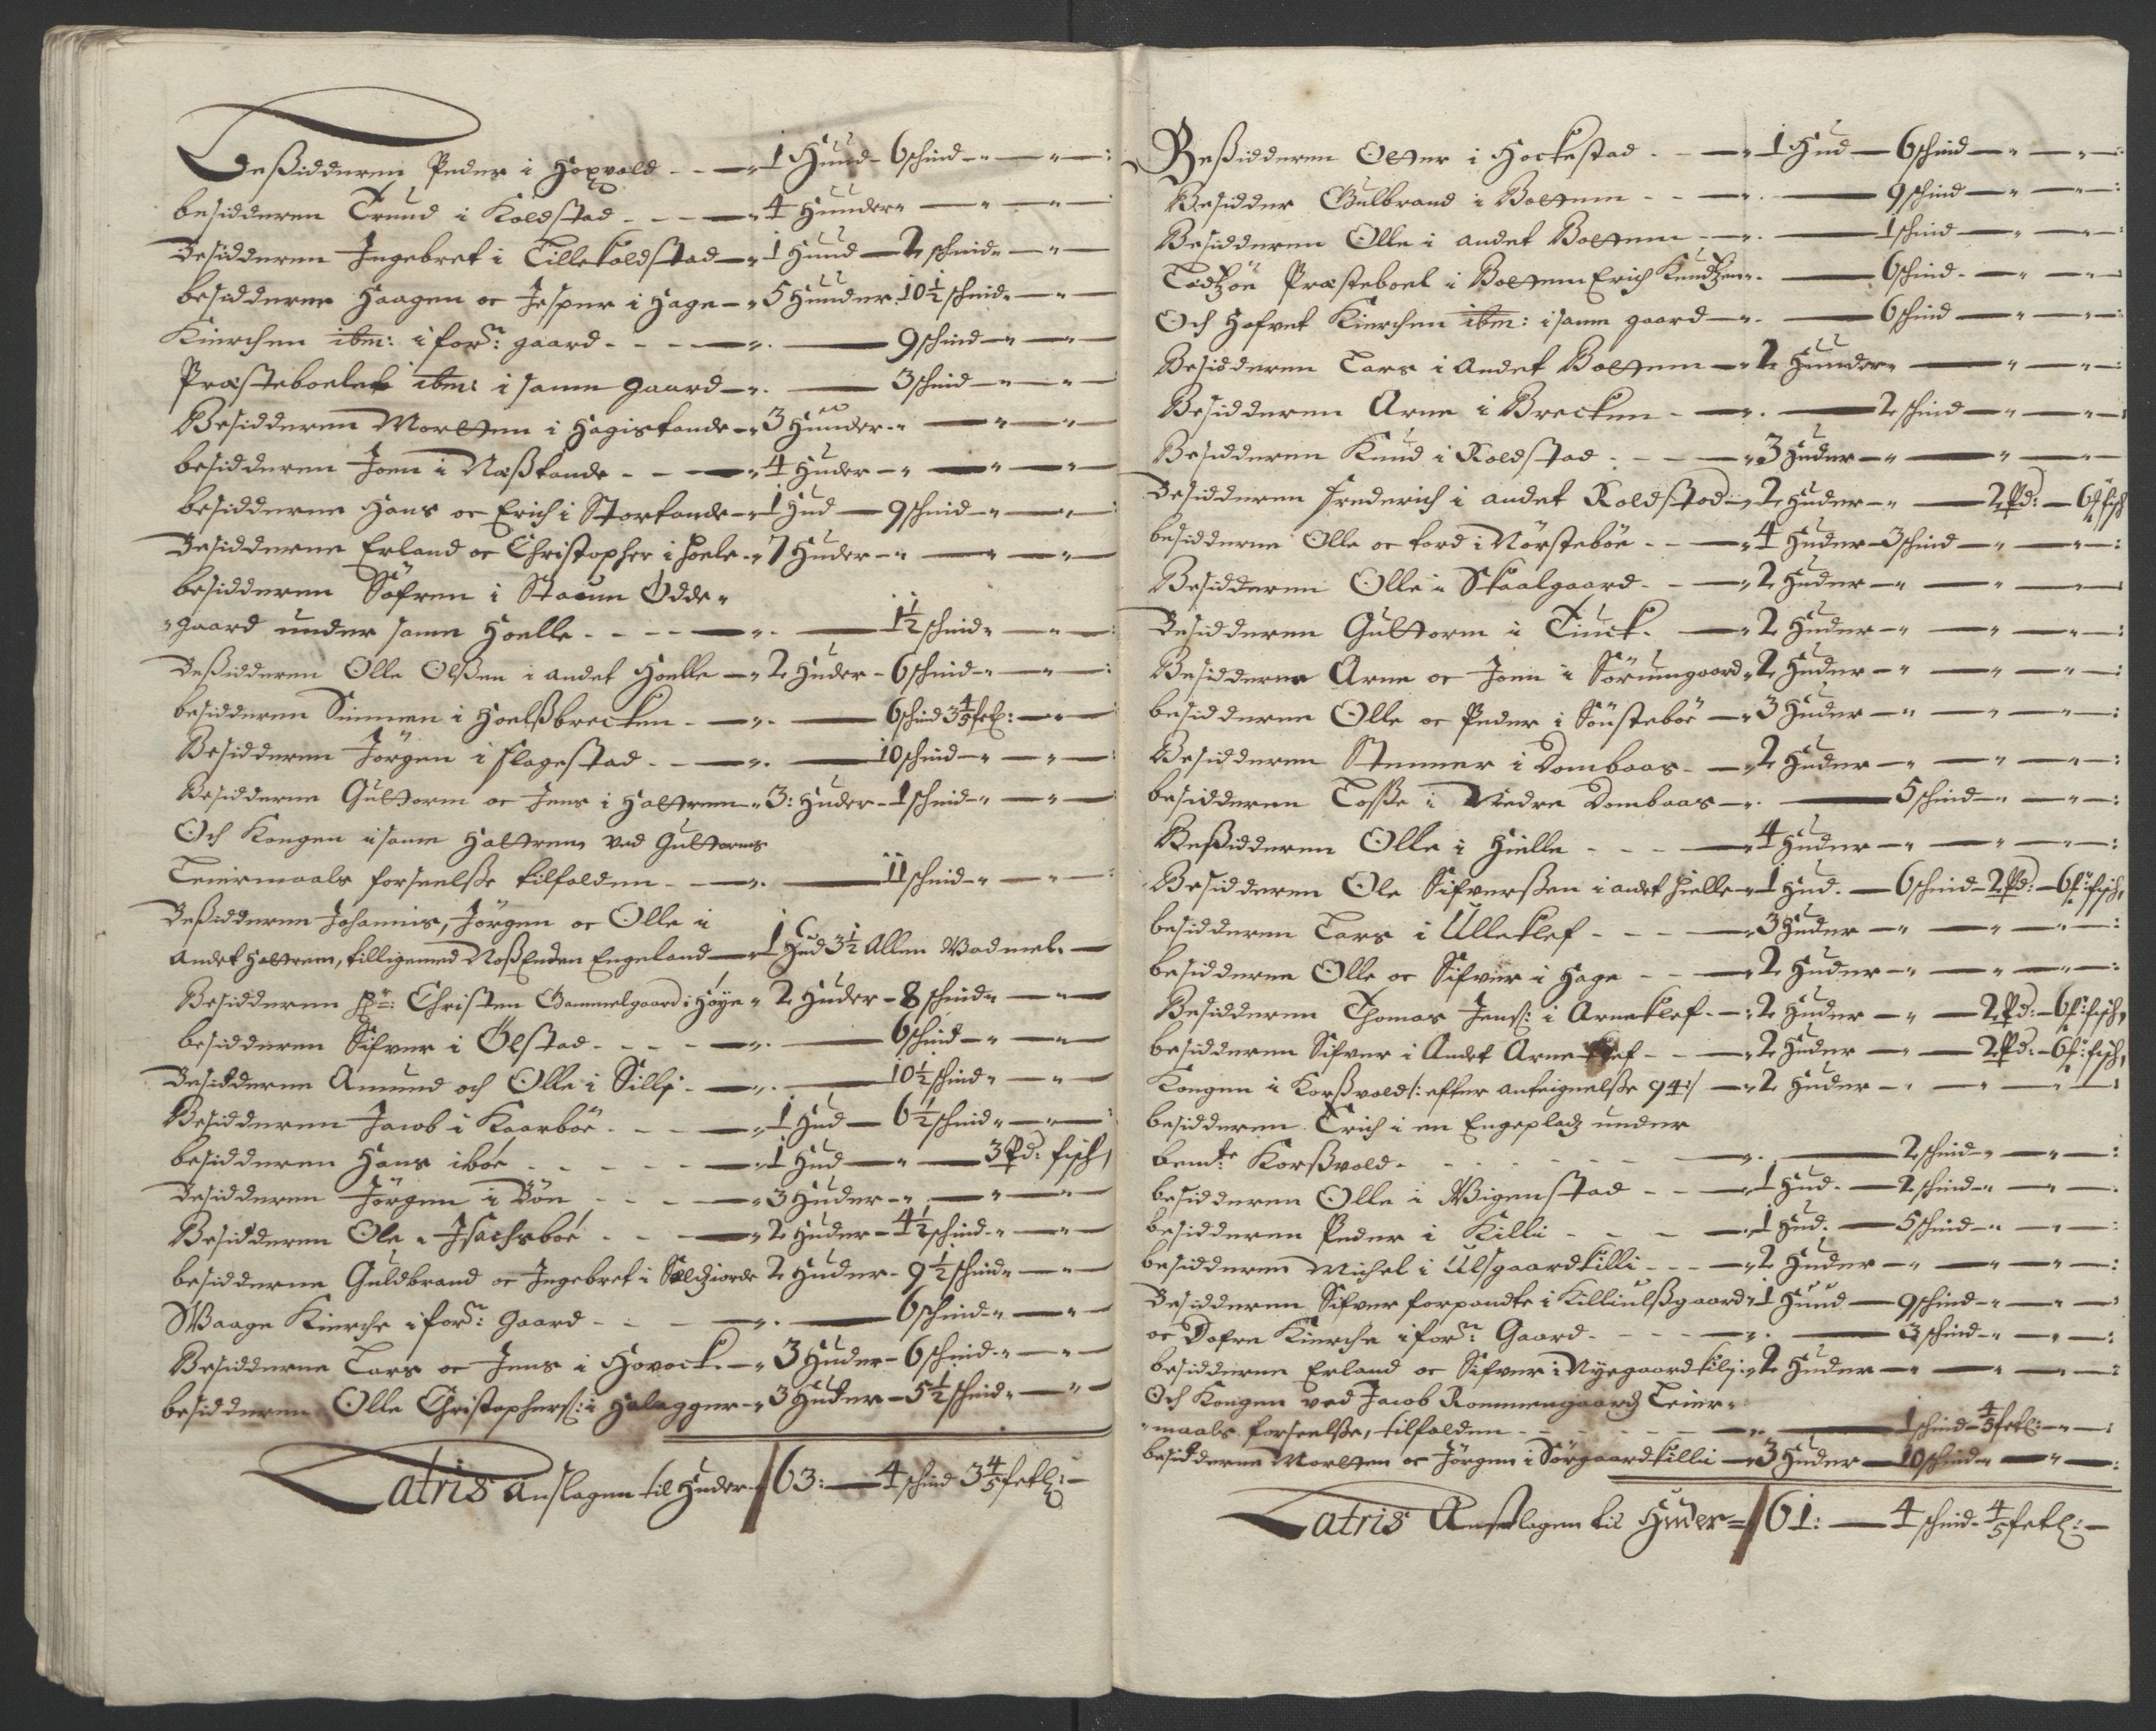 Beßidderen Peder i Hoxvold - - — 1 Huud - 6 schind — " — " — :
besidderen Trund i Koldstad - - - — 4 Huuder " — " — " —
Besidderen Ingebret i Lillekoldstad — 1 Huud — 2 schind " — " —
besidderne Haagen oc Jesper i Hage — 5 Huuder 10½ schind " — " —
Kierchen ibm: i forn: gaard - - - — " — 9 schind — " — " —
Præsteboelet ibm: i samme gaard — " — 3 schind — " — " —
Besidderen Morten i Hagistande — 3 Huuder - " — " — " —
besidderen Joen i Næßtande - - — 4 Huder — " — " — " —
besidderne Hans oc Erich i Stortande — 1 Hud — 9 schind — " — " — :
Besidderne Erland oc Christopher i Hoele - 7 Huder — " — " — " —
besidderen Söfren i Staum Ödde-
"gaard under samme Hoelle - - - — " — 1½ schind " — " — :
Beßidderen Olle Olßen i andet Hoelle — 2 Huder - 6 schind - " — " — :
besidderen Simmen i Hoelßbrecken - — " — 6 schind 3⅘ fetl: — " —
Besidderen Jörgen i Flagestad - - — " — 10 schind — " — " — :
Besidderne Guttorm oc Jens i Haltrem - 3: Huder - 1 schind - " — " — :
Och Kongen i samme Haltrem ved Guttorms
Leiermaals forseelße tilfalden - — " — 11 schind — " — " — :
Beßidderen Johannis, Jörgen oc Olle i
andet Haltrem, tilligemed Noßenden Engeland — 1 Hud 3½ Allen Vadmel. —
Besidderen Hr: Christen Gammelgaard i Höye - 2 Huder - 8 schind " — " —
besidderen Sifver i Ölstad - - - - — " — 6 schind — " — " —
Besidderne Amund och Olle i Sillj - — " — 10½ schind " — " —
Besidderen Jacob i Kaarböe - - - — 1 Hud — 6½ schind " — " — :
besidderen Hans iböe - - - - — 1 Hud — " — 3 Pd: fisch,
Besidderen Jörgen i Böe - - - — 3 Huder — " — " — " —
Besidderen Ole i Isachsböe - - - — 2 Huder - 4½ schind - " — " —
besidderne Guldbrand oc Ingebret i Sælsiorde 2 Huder - 9½ schind " — " —
Waage Kierche i forn: Gaard - - - — " — 6 schind - " — " —
Besidderne Lars oc Jens i Hovock. — 3 Huder - 6 schind - " — " —
besidderen Olle Christophers: i Halagger — 3 Huder - 5½ schind " — " —
Latris Anslagen til Huder - 63: — 4 schind 3⅘ fetl: —
Beßidderen Otter i Hockestad - - — 1 Hud — 6 schind — " — " — :
Besidder Gulbrand i Bottem - - — " — 9 schind — " — " — :
Besidderen Olle i andet Bottem - — " — 1 schind — " — " — :
Lædzöe Præsteboel i Bottem Erich Knudzen - " — 6 schind - — " — " —
Och Hafvet Kierchen ibm: i samme gaard — " — 6 schind — " — " —
Besidderen Lars i Andet Bottem — 2 Huuder " — " — " — :
Besidderen Arne i Brecken - — " — 2 schind — " — " — :
Besidderen Knud i Roldstad - - — 3 Huder — " — " — " —
Besidderen Frederich i andet Roldstad — 2 Huder — " — 2 Pd: — 6 s: fisch
besidderne Olle oc Tord i Nörsteböe - - — 4 Huder - 3 schind — " — " — :
Besidderen Olle i Skaalgaard - - — 2 Huder — " — " — " — :
Besidderen Guttorm i Tiuck - — 2 Huder — " — " — " — :
Besidderne Arne oc Joen i Sörumgaard - 2 Huder — " — " — " — :
besidderne Olle oc Peder i Sönsteböe — 3 Huder — " — " — " — :
Besidderen Stenner i Dombaas - — 2 Huder — " — " — " — :
besidderen Toße i Nedre Dombaas — " — 5 schind — " — " — :
Beßidderen Olle i Hielle - - - — 4 Huder — " — " — " — :
Besidderen Ole Sifverßen i andet Hielle — 1 Hud. — 6 schind - 2 Pd: — 6 s: fisch,
besidderen Lars i Ulleklef - - - — 3 Huder — " — " — " — :
besidderne Olle oc Sifver i Hage - - — 2 Huder — " — " — " — :
Besidderen Thomas Jens: i Arneklef - — 2 Huder — " — 2 Pd: — 6 s: fisch,
besidderen Sifver i Andet Arneklef - - — 2 Huder — " — 2 Pd: — 6 s: fisch,
Kongen i Korßvold /: efter anteignelße 94 :/ — 2 Huder — " — " — " — :
besidderen Erich i en Engeplads under
bemte Korßvold - - - - - — " — 2 schind — " — " — :
besidderen Olle i Wigenstad - - — 1 Hud. — 2 schind — " — " — :
besidderen Peder i Killi - - - — 1 Hud. — 5 schind — " — " — :
besidderen Michel i Ulsgaardkilli - - — 2 Huder — " — " — " — :
Besidderen Sifver forpandte i Killiulßgaard - 1 Huud — 9 schind — " — " — :
oc Dofre Kierche i forn: Gaard - - - — " — 3 schind — " — " — :
besidderne Erland oc Sifver i Nyegaardkilj - 2 Huder — " — " — " — :
Och Kongen ved Jacob Rommengaards Leier-
"maals forseelße, tilfalden - - - - — " — 1 schind - ⅘ fetl: — " — :
besidderne Morten oc Jörgen i Sörgaardkilli — 3 Huder — 10 schind " — " — :
Latris Anslagen til Huder = 61: — 4 schind - ⅘ fetl: —